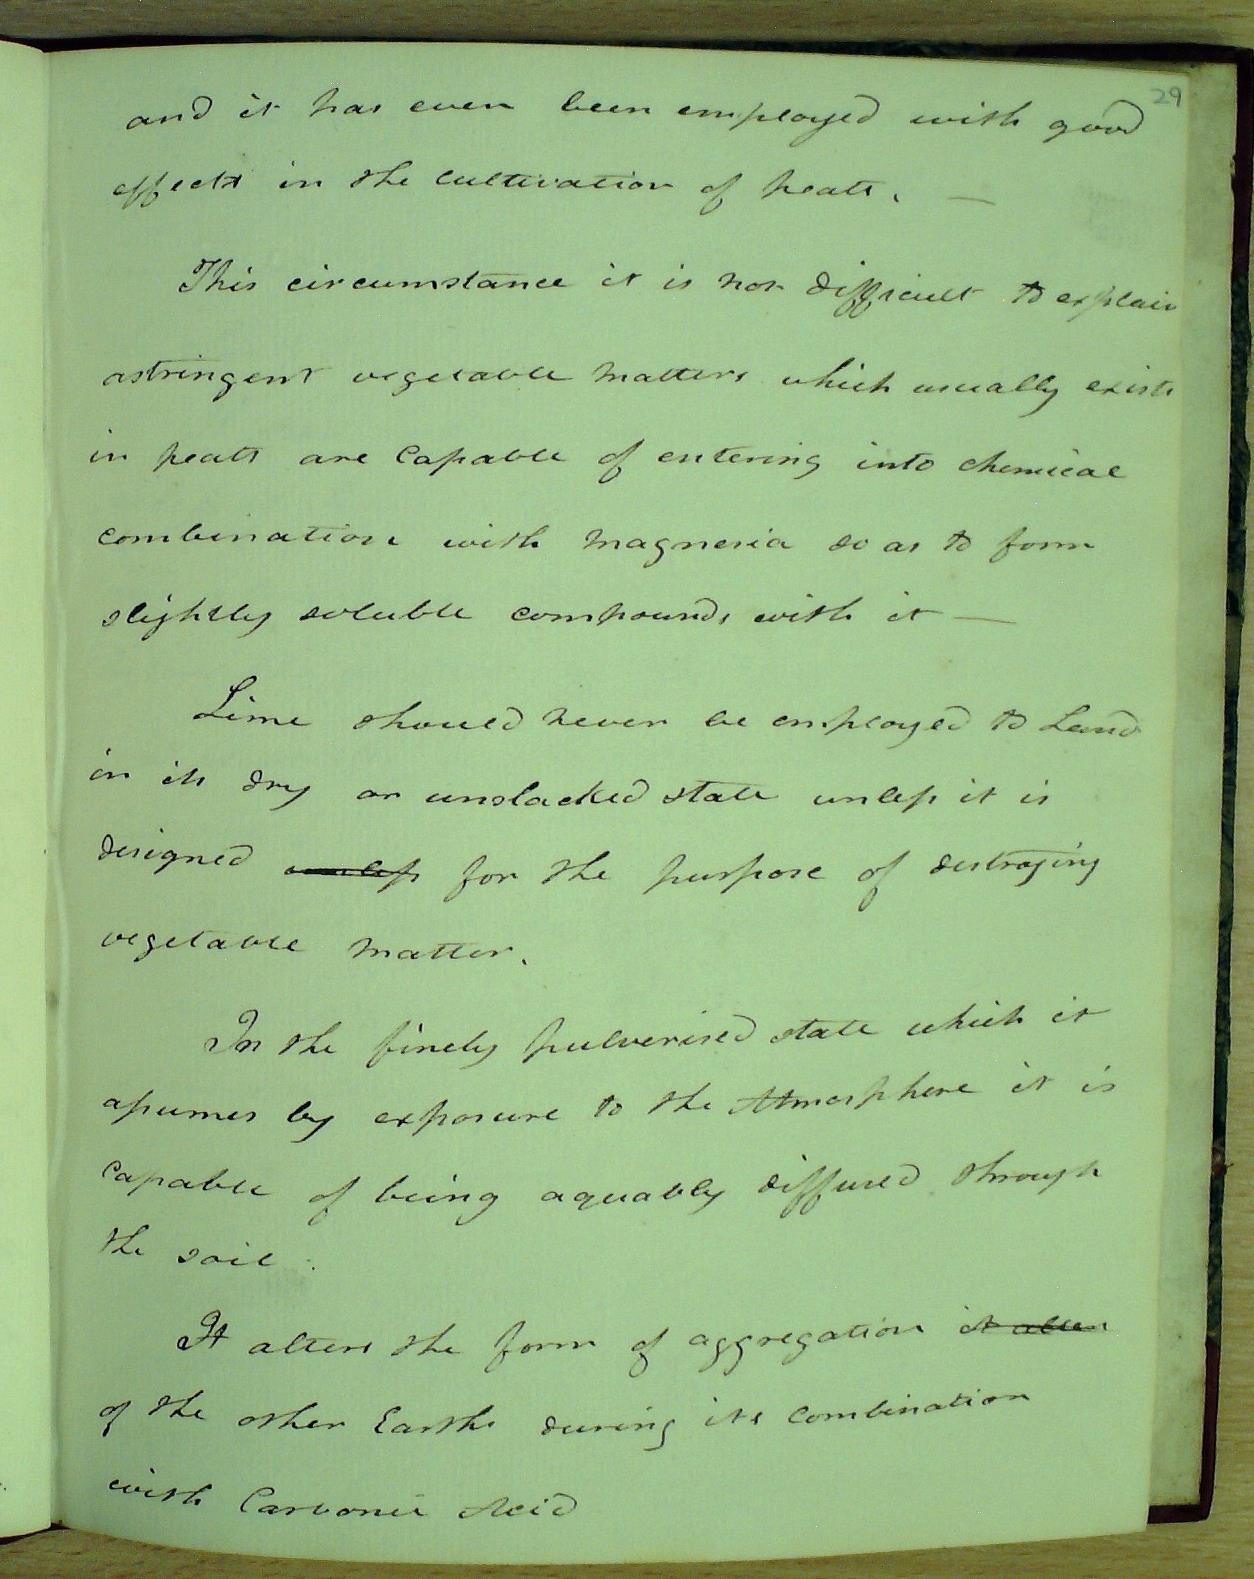 29
and it has even been employed with good
effect in the cultivation of peats. —
This circumstance it is not difficult to explain
astringent vegetable matters which usually exist
in peats are capable of entering into chemical
combination with magnesia so as to form
slightly soluble compounds with it —
Lime should never be employed to Land
in its dry or unslacked state unless it is
designed unless for the purpose of destroying
vegetable matter.
In the finely pulverised state which it
assumes by exposure to the Atmosphere it is
capable of being aquably diffused through
the soil.
It alters the form of aggregation it alters
of the other Earths during its combination
with Carbonic Acid